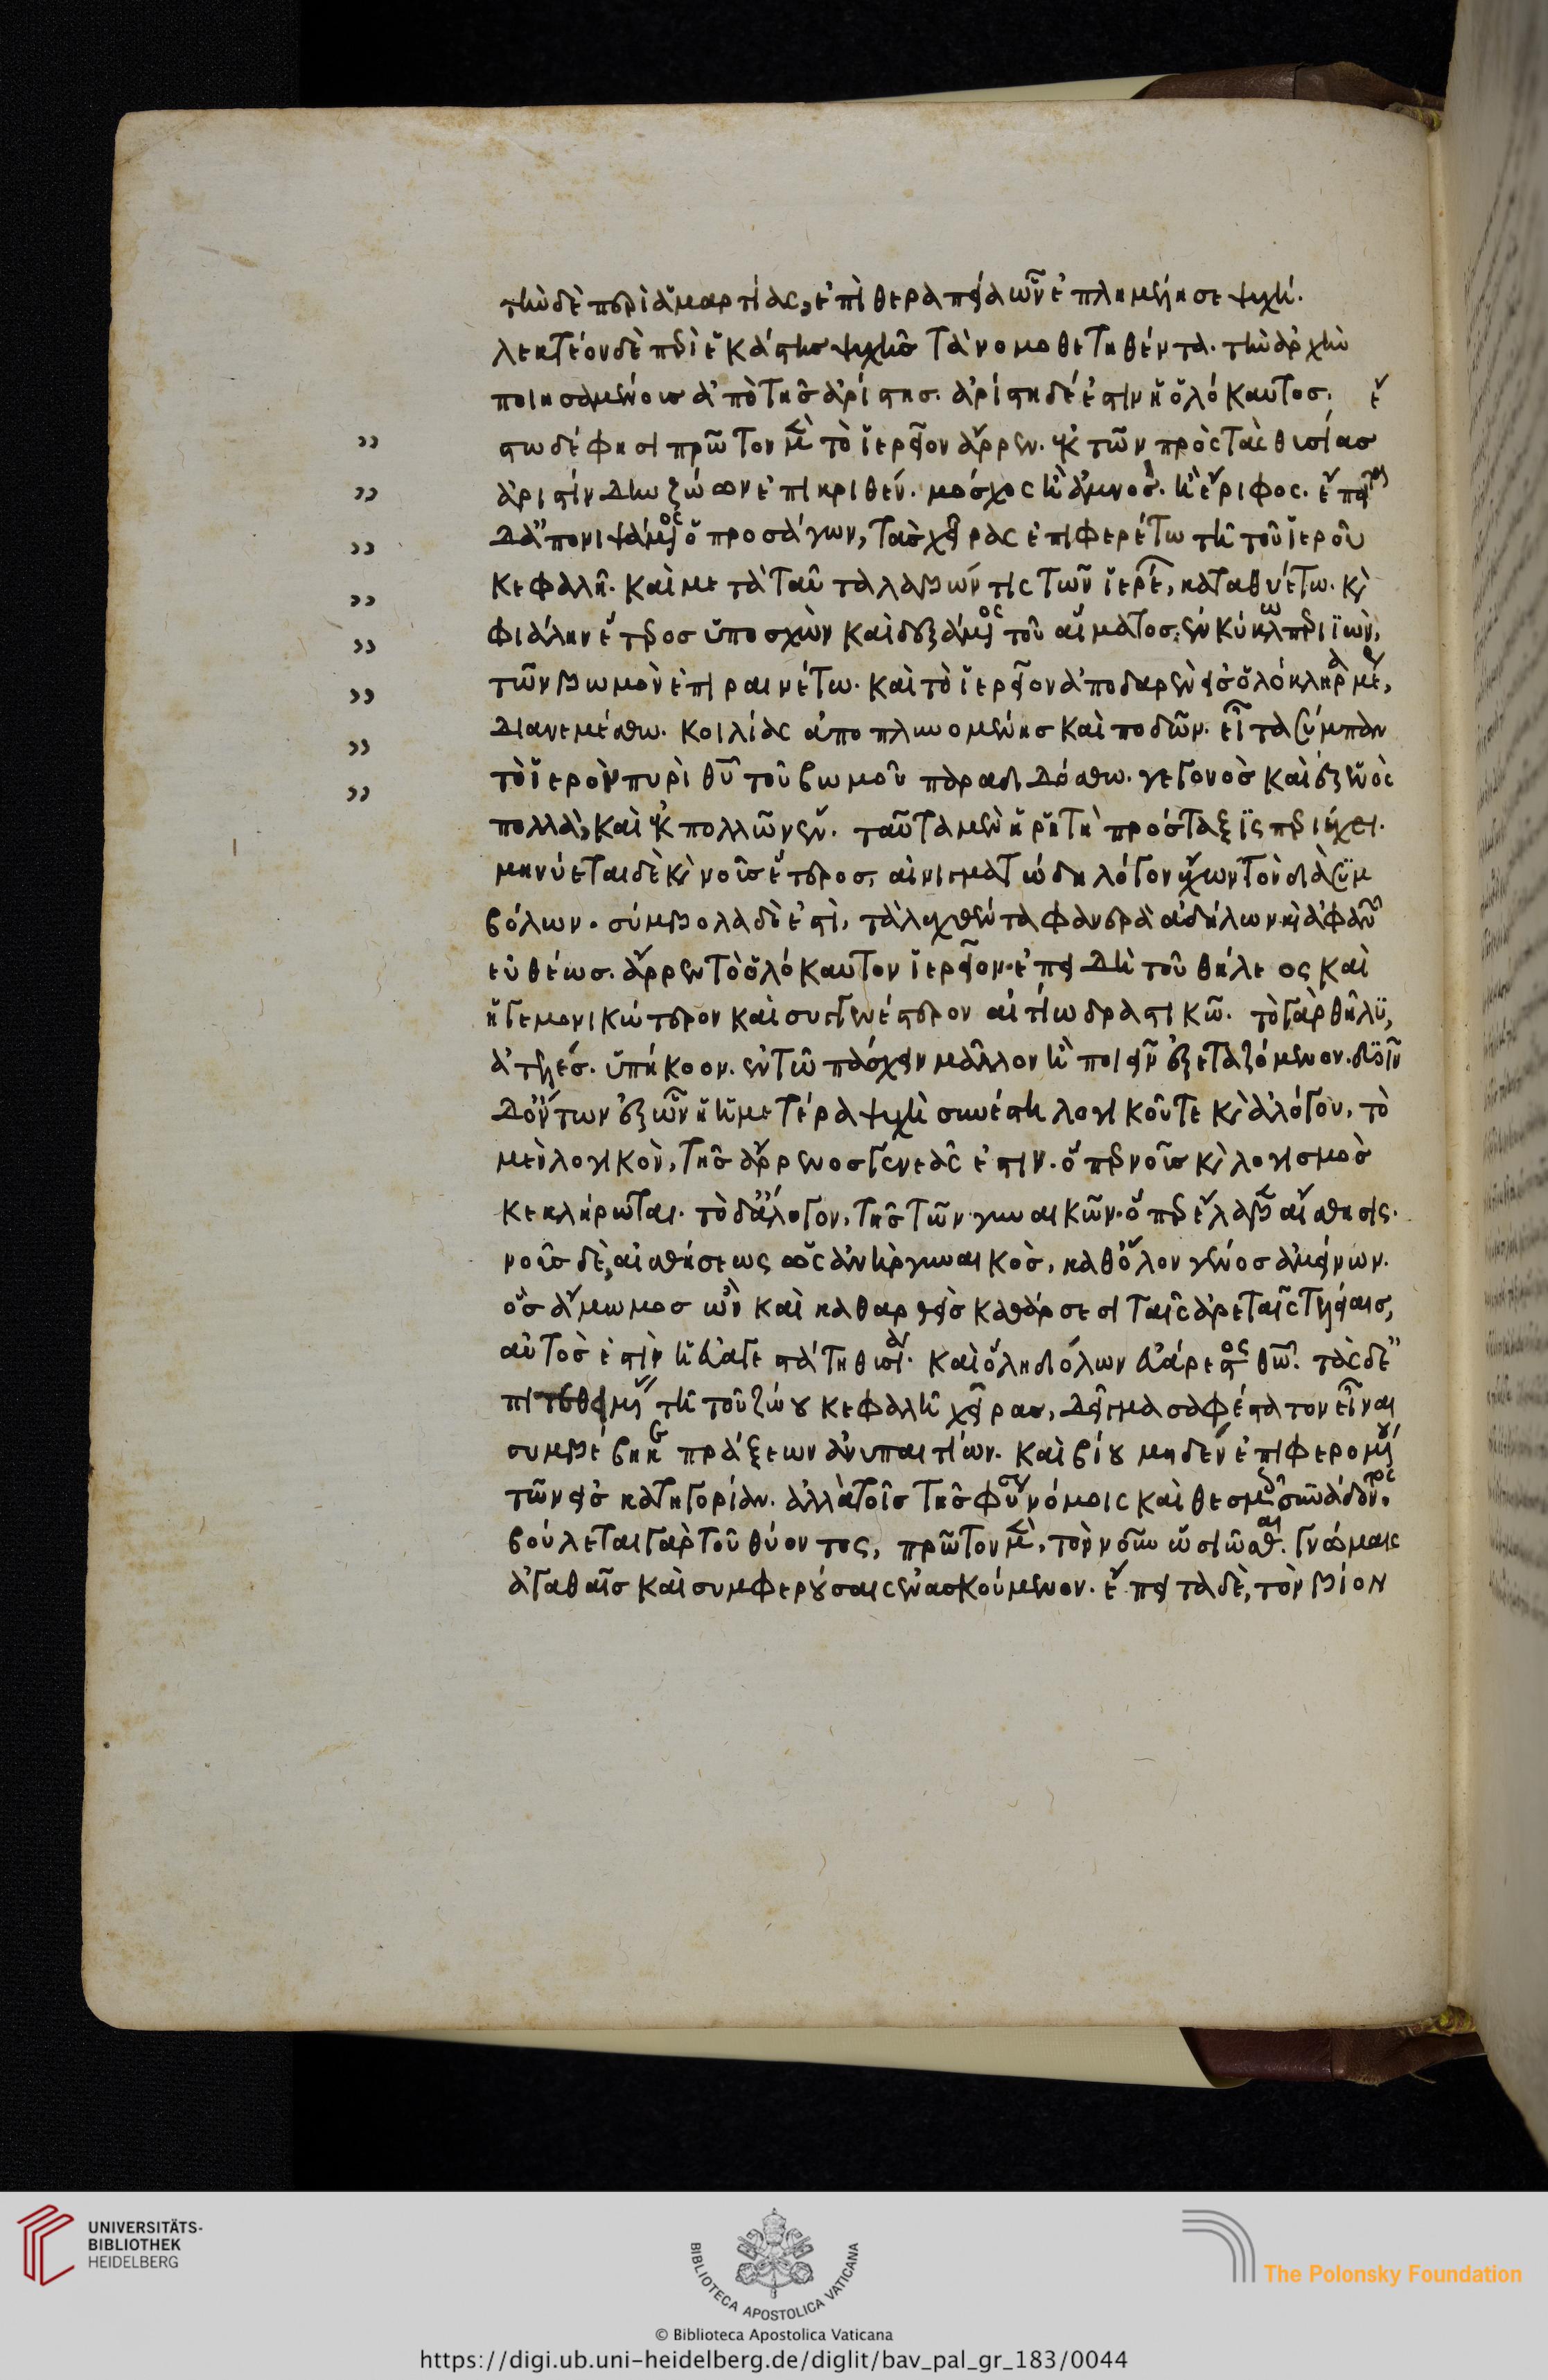 τὴν δὲ περὶ ἁμαρτίας, ἐπὶ θεραπεία ὧν ἐπλημέλησε ψυχή.
λεκτέον δὲ περὶ ἑκάστης ψυχῆς τὰ νομοθετηθέντα. τὴν ἀρχὴν
ποιησαμένοις ἀπὸ τῆς ἀρίστης. ἀρίστη δέ ἐστιν ἡ ὁλόκαυτος. ἔ
στω δέ φησι πρῶτον μὲν τὸ ἱερεῖον ἄρρεν. ἐκ τῶν πρὸς τὰς θυσίας
ἀριστίνδην ζώων ἐπικριθέν. μόσχος ἢ ἀμνὸς. ἢ ἔριφος. ἔπειτα
δ' ἀπονιψάμενος ὁ προσάγων, τὰς χεῖρας ἐπιφερέτω τῆ τοῦ ἱεροῦ
κεφαλῆ. καὶ μετὰ ταῦτα λαβών τις τῶν ἱερέων, καταθυέτω. καὶ
φιάλην ἕτερος ὑποσχὼν καὶ δεξάμενος τοῦ αἵματος, ἐν κύκλω περιϊὼν,
τῶν βωμὸν ἐπιραινέτω. καὶ τὸ ἱερεῖον ἀποδαρὲν εἰς ὁλόκληρα μέλη,
διανεμέσθω. κοιλίας ἀποπλυνομένης καὶ ποδῶν. εἶτα σύμπαν
τὸ ἱερὸν πυρὶ θεοῦ τοῦ βωμοῦ παραδιδόσθω. γεγονὸς καὶ ἐξ ἑνὸς
πολλὰ, καὶ ἐκ πολλῶν ἕν. ταῦτα μὲν ἡ ῥητὴ πρόσταξϊς περιέχει.
μηνύεται δὲ καὶ νοῦς ἕτερος, αἰνιγματώδη λόγον ἔχων τὸν διὰ συμ
βόλων. σύμβολα δὲ ἐστὶ, τὰ λεχθέντα φανερὰ ἀδήλων καὶ ἀφανῶν
εὐθέως. ἄρρεν τὸ ὁλόκαυτον ἱερεῖον. ἐπειδὴ τοῦ θήλεος καὶ
ἡγεμονικώτερον καὶ συγγενέστερον αἰτίω δραστικῶ. τὸ γὰρ θῆλϋ,
ἀτελές. ὑπήκοον. ἐν τῶ πάσχειν μᾶλλον ἢ ποιεῖν ἐξεταζόμενον. δυοῖν
δ' ὄντων ἐξ ὧν ἡ ἡμετέρα ψυχὴ συνέστη λογικοῦ τε καὶ ἀλόγου, τὸ
μὲν λογικὸν, τῆς ἄρρενος γενεᾶς ἐστιν. ὅπερ νοῦς καὶ λογισμὸς
κεκλήρωται. τὸ δ' ἄλογον, τῆς τῶν γυναικῶν. ὅπερ ἔλαβεν αἴσθησις.
νοῦς δὲ, αἰσθήσεως ὡς ἀνὴρ γυναικὸς, καθόλον γένος ἀμείνων.
ὃς ἄμωμος ὢν καὶ καθαρθεὶς καθάρσεσι ταῖς ἀρεταῖς τελείαις,
αὐτὸς ἐστὶν ἡ εὐαγεστάτη θυσία. καὶ ὅλη δι' ὅλων εὐάρεστος θεῶ. τὰς δὲ
ἐπιτεθειμένας τῆ τοῦ ζώου κεφαλῆ χεῖρας, δεῖγμα σαφέστατον εἶναι
συμβέβηκε πράξεων ἀνυπαιτίων. καὶ βίου μηδὲν ἐπιφερομένου
τῶν εἰς κατηγορίαν. ἀλλὰ τοῖς τῆς φύσεως νόμοις καὶ θεσμοῖς συνάδοντος.
βούλεται γὰρ τοῦ θύοντος, πρῶτον μὲν, τὸν νοῦν ὡσιῶσθαι γνώμαις
ἀγαθαῖς καὶ συμφερούσαις ἐνασκούμενον. ἔπειτα δὲ, τὸν βίον
UNIVERSITÄTS-
BIBLIOTHEK
HEIDELBERG
BIBLIOTECA APOSTOLICA VATICANA
© Biblioteca Apostolica Vaticana
The Polonsky Foundation
https://digi.ub.uni-heidelberg.de/diglit/bav_pal_gr_183/0044